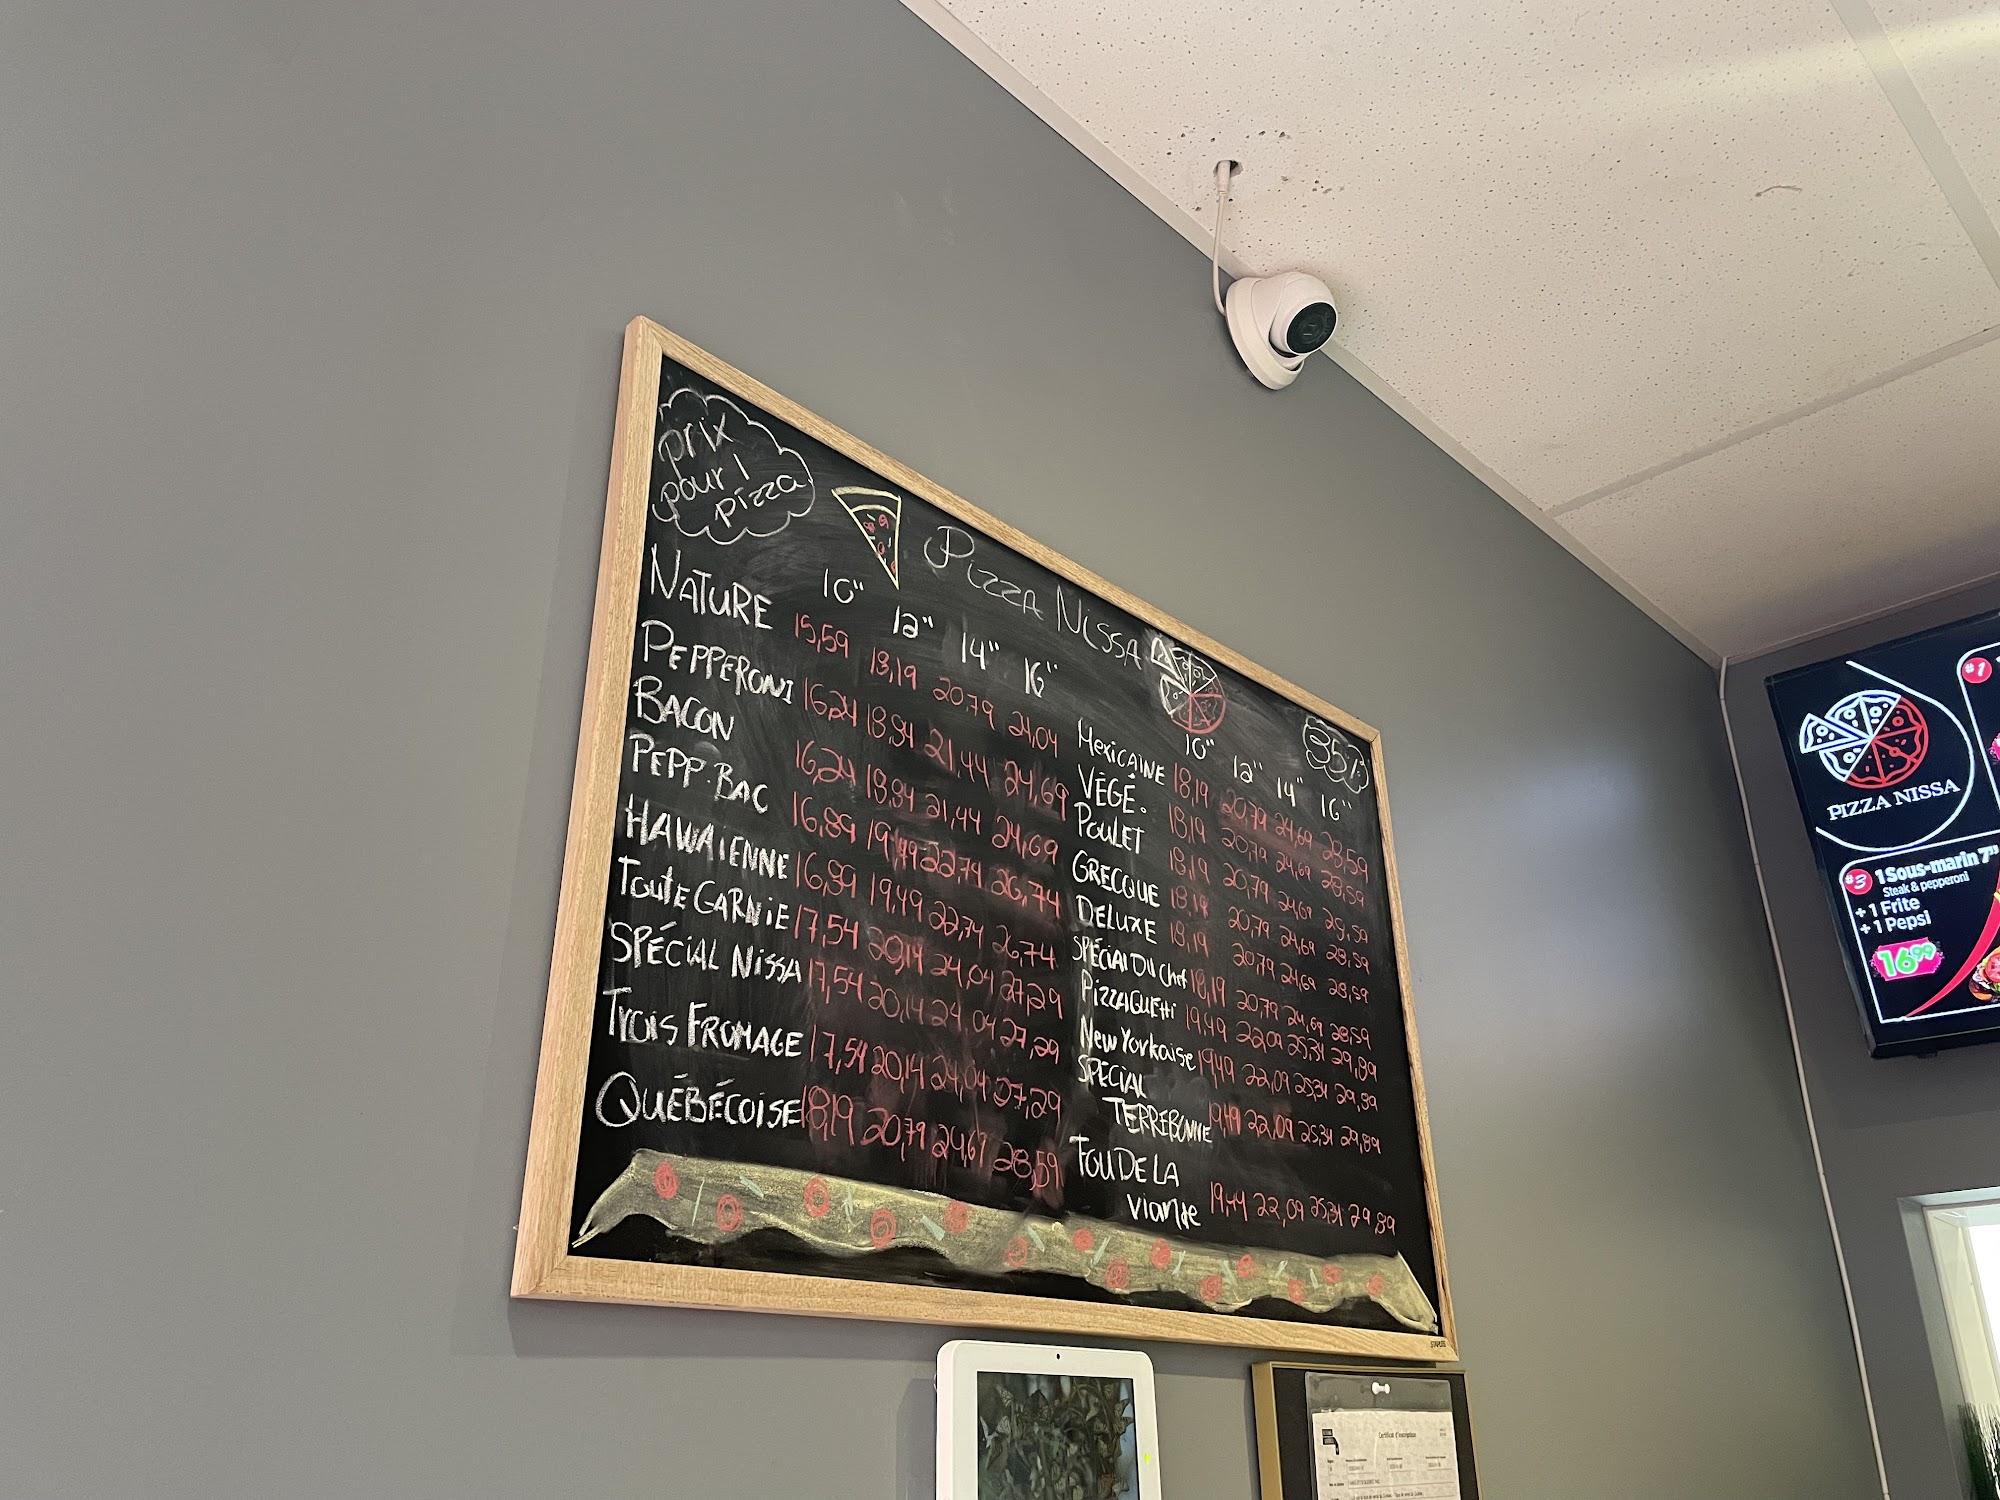 prix
pour 1
pizza
Pizza Nissa
10" 12" 14" 16"
NATURE 15,59 18,19 20,79 24,04
PEPPERONI 16,24 18,84 21,44 24,69
BACON 16,24 18,84 21,44 24,69
PEPP. BAC 16,89 19,49 22,74 26,74
HAWAIENNE 16,89 19,49 22,74 26,74
TOUTE GARNIE 17,54 20,14 24,04 27,29
SPÉCIAL NISSA 17,54 20,14 24,04 27,29
TROIS FROMAGE 17,54 20,14 24,04 27,29
QUÉBÉCOISE 18,19 20,79 24,69 28,59
10" 12" 14" 16"
MEXICAINE 18,19 20,79 24,69 28,59
VÉGÉ. 18,19 20,79 24,69 28,59
POULET 18,19 20,79 24,69 28,59
GRECQUE 18,19 20,79 24,69 28,59
DELUXE 18,19 20,79 24,69 28,59
SPÉCIAL DU Chef 18,19 20,79 24,69 28,59
PIZZAGUETTI 19,49 22,09 25,34 29,89
NEW YORKAISE 19,49 22,09 25,34 29,89
SPÉCIAL
TERREBONNE 19,49 22,09 25,34 29,89
FOU DE LA
VIANDE 19,49 22,09 25,34 29,89
STAPLES
PIZZA NISSA
#1
#3 1 Sous-marin 7"
Steak & pepperoni
+ 1 Frite
+ 1 Pepsi
16⁹⁹
Certificat d'inscription